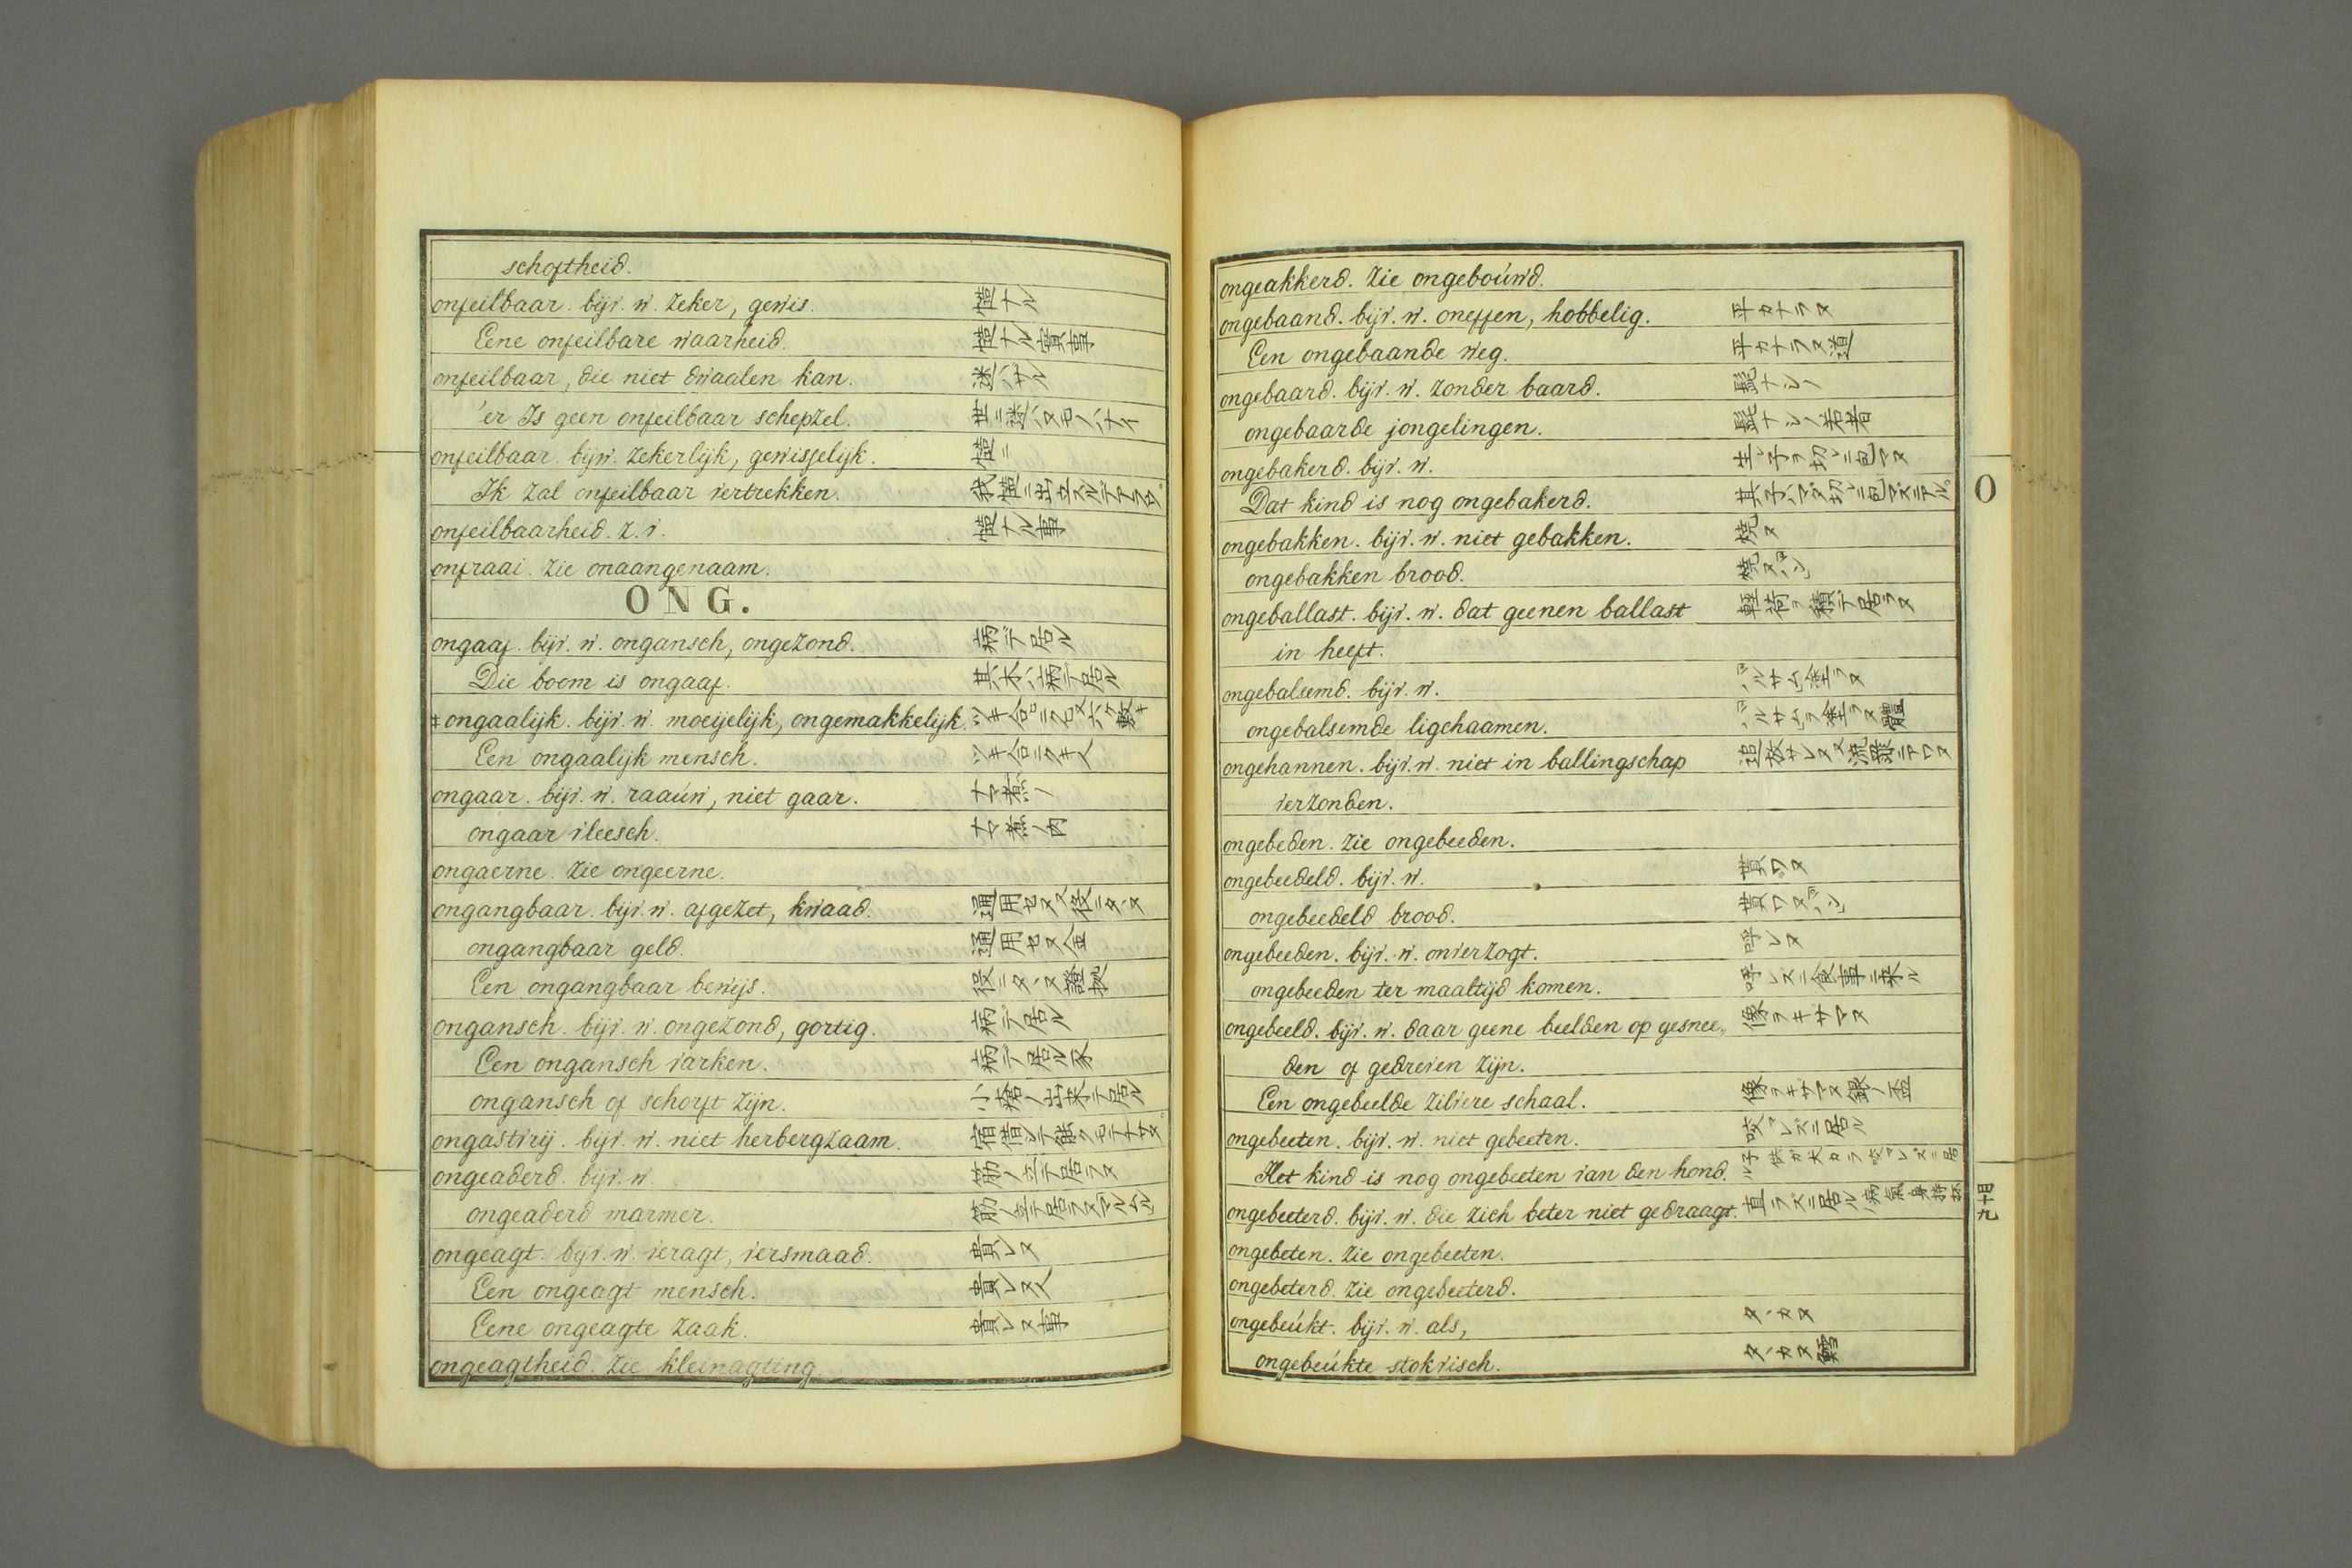 schoftheid.
onfeilbaar. bijv. w. zeker, gewis. 慥ナル
Eene onfeilbare waarheid. 慥ナル實事
onfeilbaar, die niet dwaalen kan. 迷ハザル
'er Is geen onfeilbaar schepzel. 世ニ迷ハヌモノハナイ
onfeilbaar. bijw. zekerlijk, gewisselijk. 慥ニ
Ik zal onfeilbaar vertrekken. 我慥ニ出立スルデアラウ
onfeilbaarheid. z. v. 慥ナル事
onfraai. zie onaangenaam.
ONG.
ongaaf. bijv. w. ongansch, ongezond. 病デ居ル
Die boom is ongaaf. 其木ハ病デ居ル
⌗ongaalijk. bijv. w. moeijelijk, ongemakkelijk.
Een ongaalijk mensch. ツキ合ニクキ人
ongaar. bijv. w. raaúw, niet gaar. ナマ煮ノ
ongaar vleesch. ナマ煮ノ肉
ongaerne. zie ongeerne.
ongangbaar. bijv. w. afgezet, kwaad. 通用セヌ又役ニタヽヌ
ongangbaar geld. 通用セヌ金
Een ongangbaar bewijs. 役ニタヽヌ證拠
ongansch. bijv. w. ongezond, gortig. 病デ居ル
Een ongansch varken. 病デ居ル豕
ongansch of schorft zijn. 小瘡ノ出来テ居ル
ongastvrij. bijv. w. niet herbergzaam.
ongeaderd. bijv. w. 筋ノ立テ居ラヌ
ongeaderd marmer. 筋ノ立テ居ラヌマルムル
ongeagt. bijv. w. veragt, versmaad. 貴レヌ
Een ongeagt mensch. 貴レヌ人
Eene ongeagte zaak. 貴レヌ事
ongeagtheid. zie kleinagting.
ongeakkerd. zie ongeboúwd.
ongebaand. bijv. w. oneffen, hobbelig. 平カナラヌ
Een ongebaande weg. 平カナラヌ道
ongebaard. bijv. w. zonder baard. 髭ナシノ
ongebaarde jongelingen. 髭ナシノ若者
ongebakerd. bijv. w. 生レ子ヲ切レニ包マヌ
Dat kind is nog ongebakerd. 其子ハマダ切レニ包マズニアル
ongebakken. bijv. w. niet gebakken. 焼ヌ
ongebakken brood. 焼ヌパン
ongeballast. bijv. w. dat geenen ballast 軽荷ヲ積デ居ラヌ
in heeft.
ongebalsemd. bijv. w. バルサム塗ラヌ
ongebalsemde ligchaamen. バルサムヲ塗ラヌ體
ongehannen. bijv. w. niet in ballingschap 追放サレヌ又流罪ニアワヌ
verzonden.
ongebeden. zie ongebeeden.
ongebeedeld. bijv. w. 貰ワヌ
ongebeedeld brood. 貰ワヌパン
ongebeeden. bijv. w. onverzogt. 呼レヌ
ongebeeden ter maaltijd komen. 呼レズニ食事ニ来ル
ongebeeld. bijv. w. daar geene beelden op gesnee„ 像ヲキザマヌ
den of gedreven zijn.
Een ongebeelde zilvere schaal. 像ヲキザマヌ銀ノ盃
ongebeeten. bijv. w. niet gebeeten. 咬マレズニ居ル
Het kind is nog ongebeeten van den hond. 子供ガ犬カラ咬マレズニ居ル
ongebeeterd. bijv. w. die zich beter niet gedraagt. 直ラズニ居ル 病氣身持抔
ongebeten. zie ongebeeten.
ongebeterd. zie ongebeeterd.
ongebeúkt. bijv. w. als, タヽカヌ
ongebeúkte stokvisch. タヽカヌ鱈
O